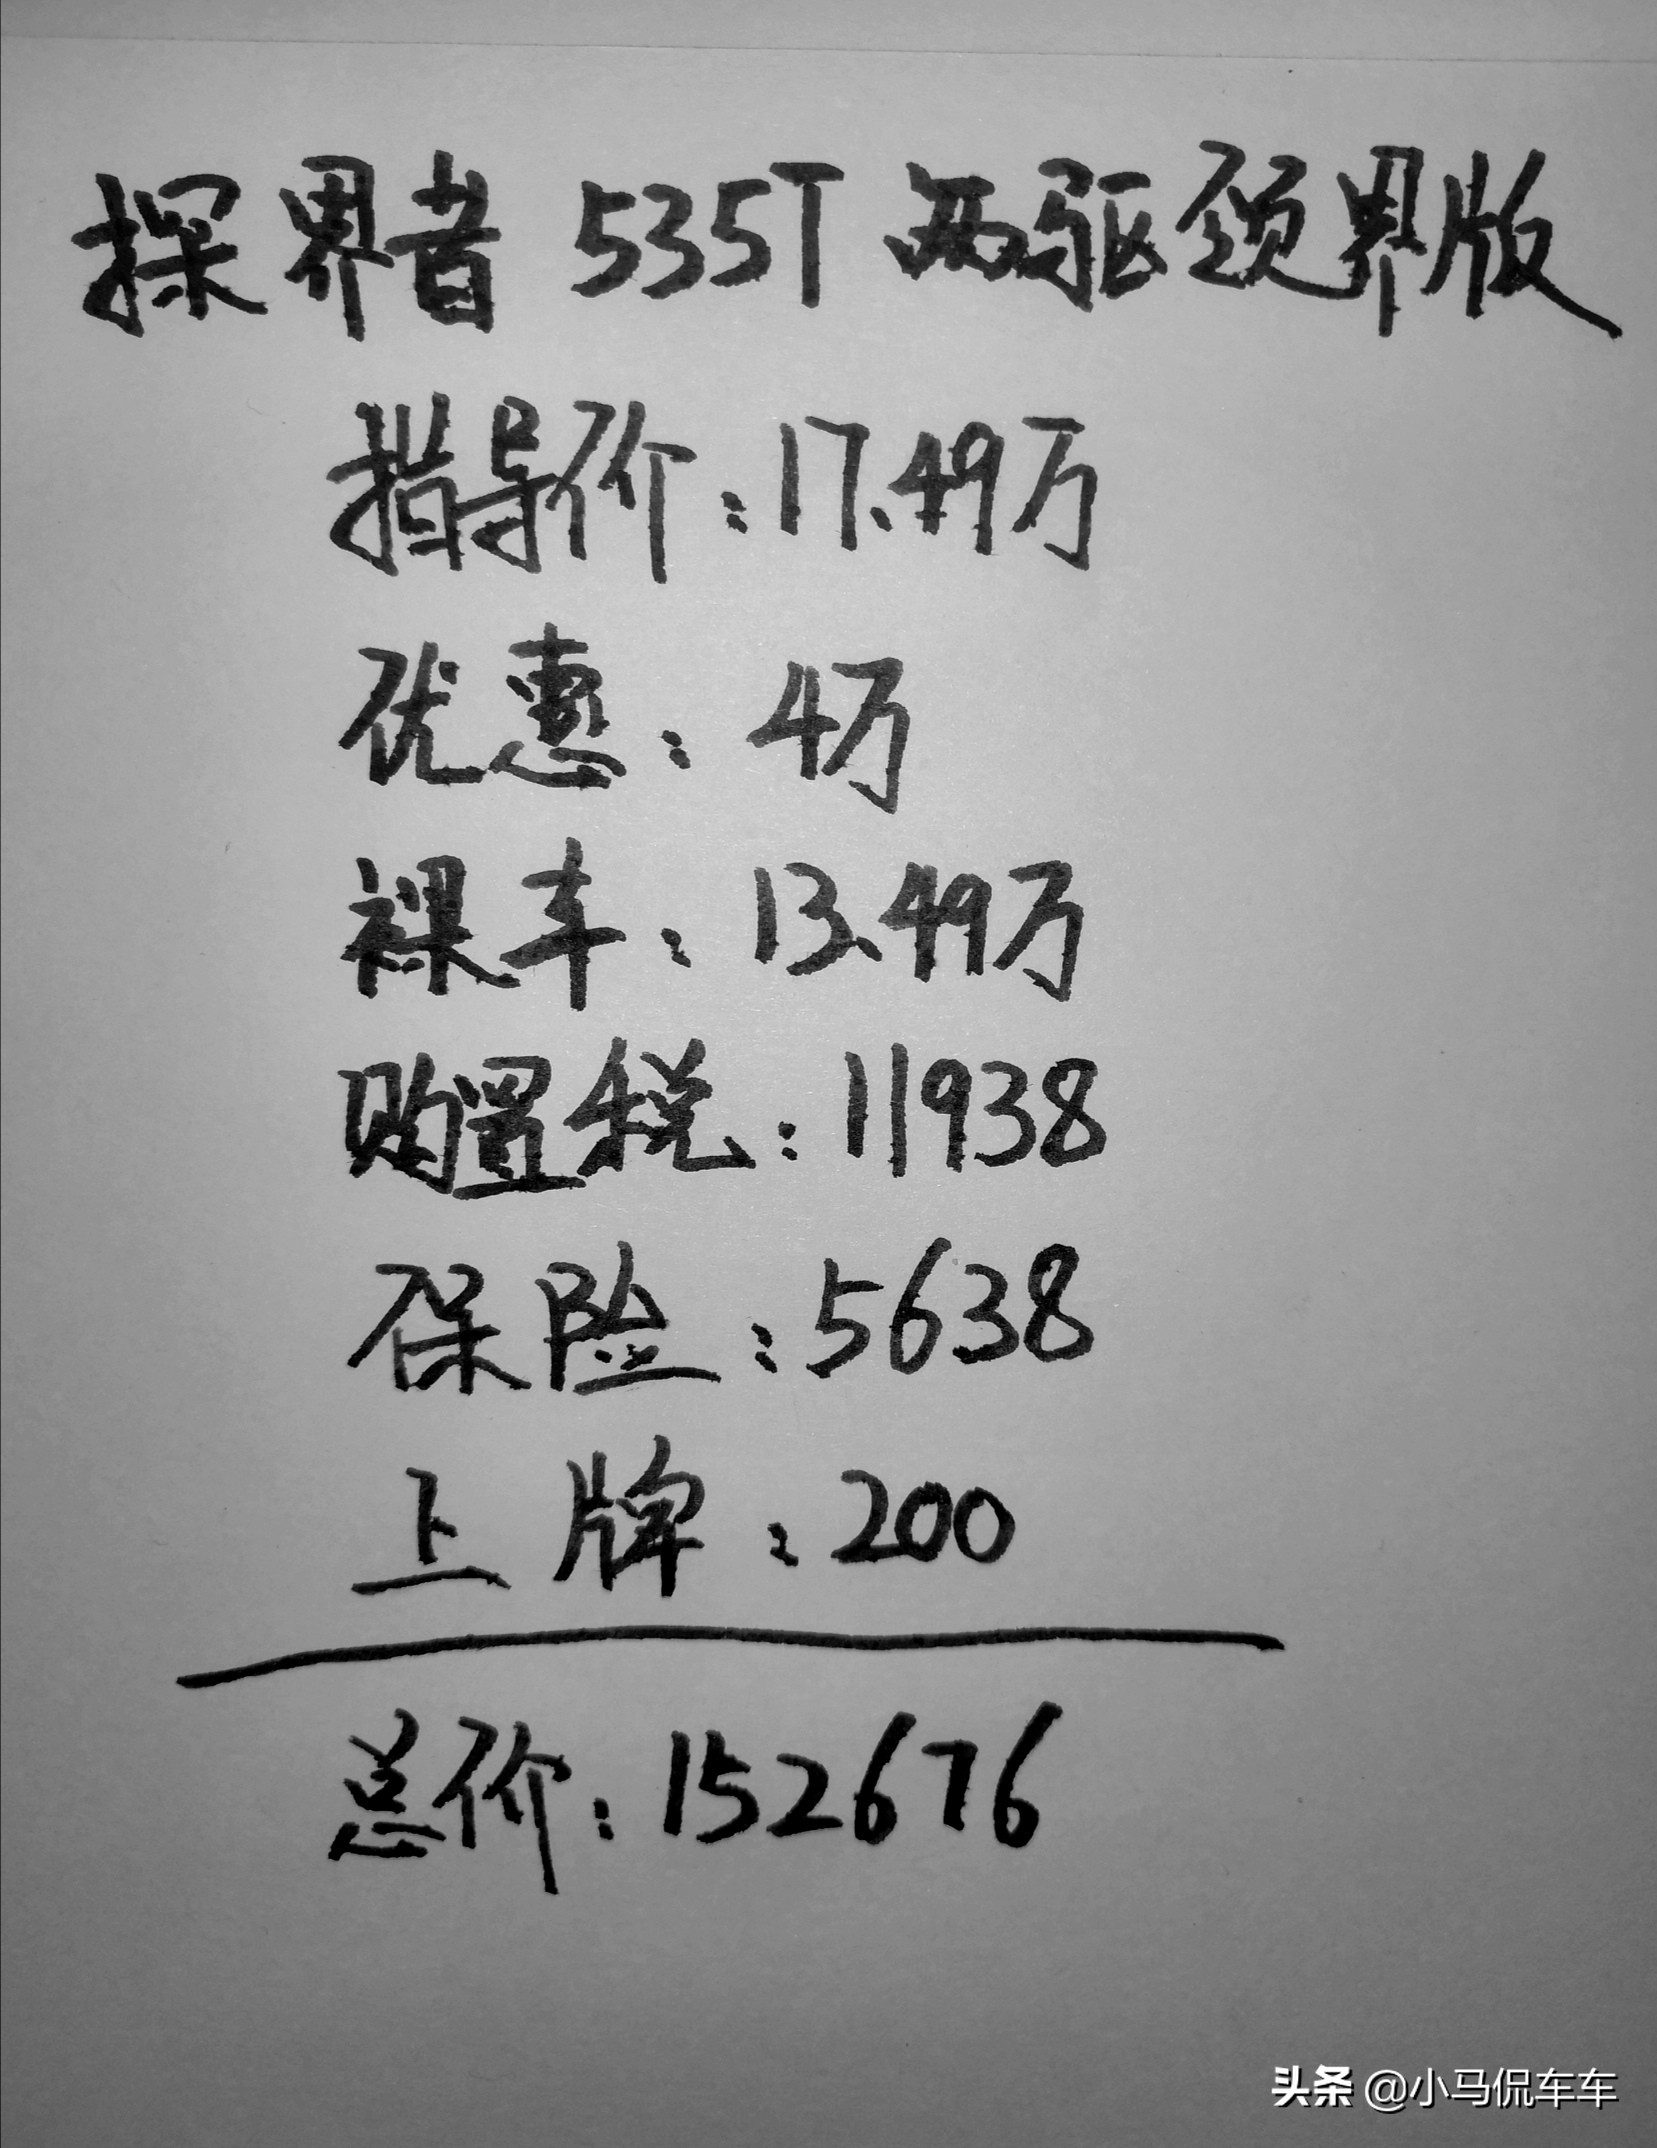 探界者 535T 两驱领界版
指导价：17.49万
优惠：4万
裸车：13.49万
购置税：11938
保险：5638
上牌：200
总价：152676
头条 @小马侃车车